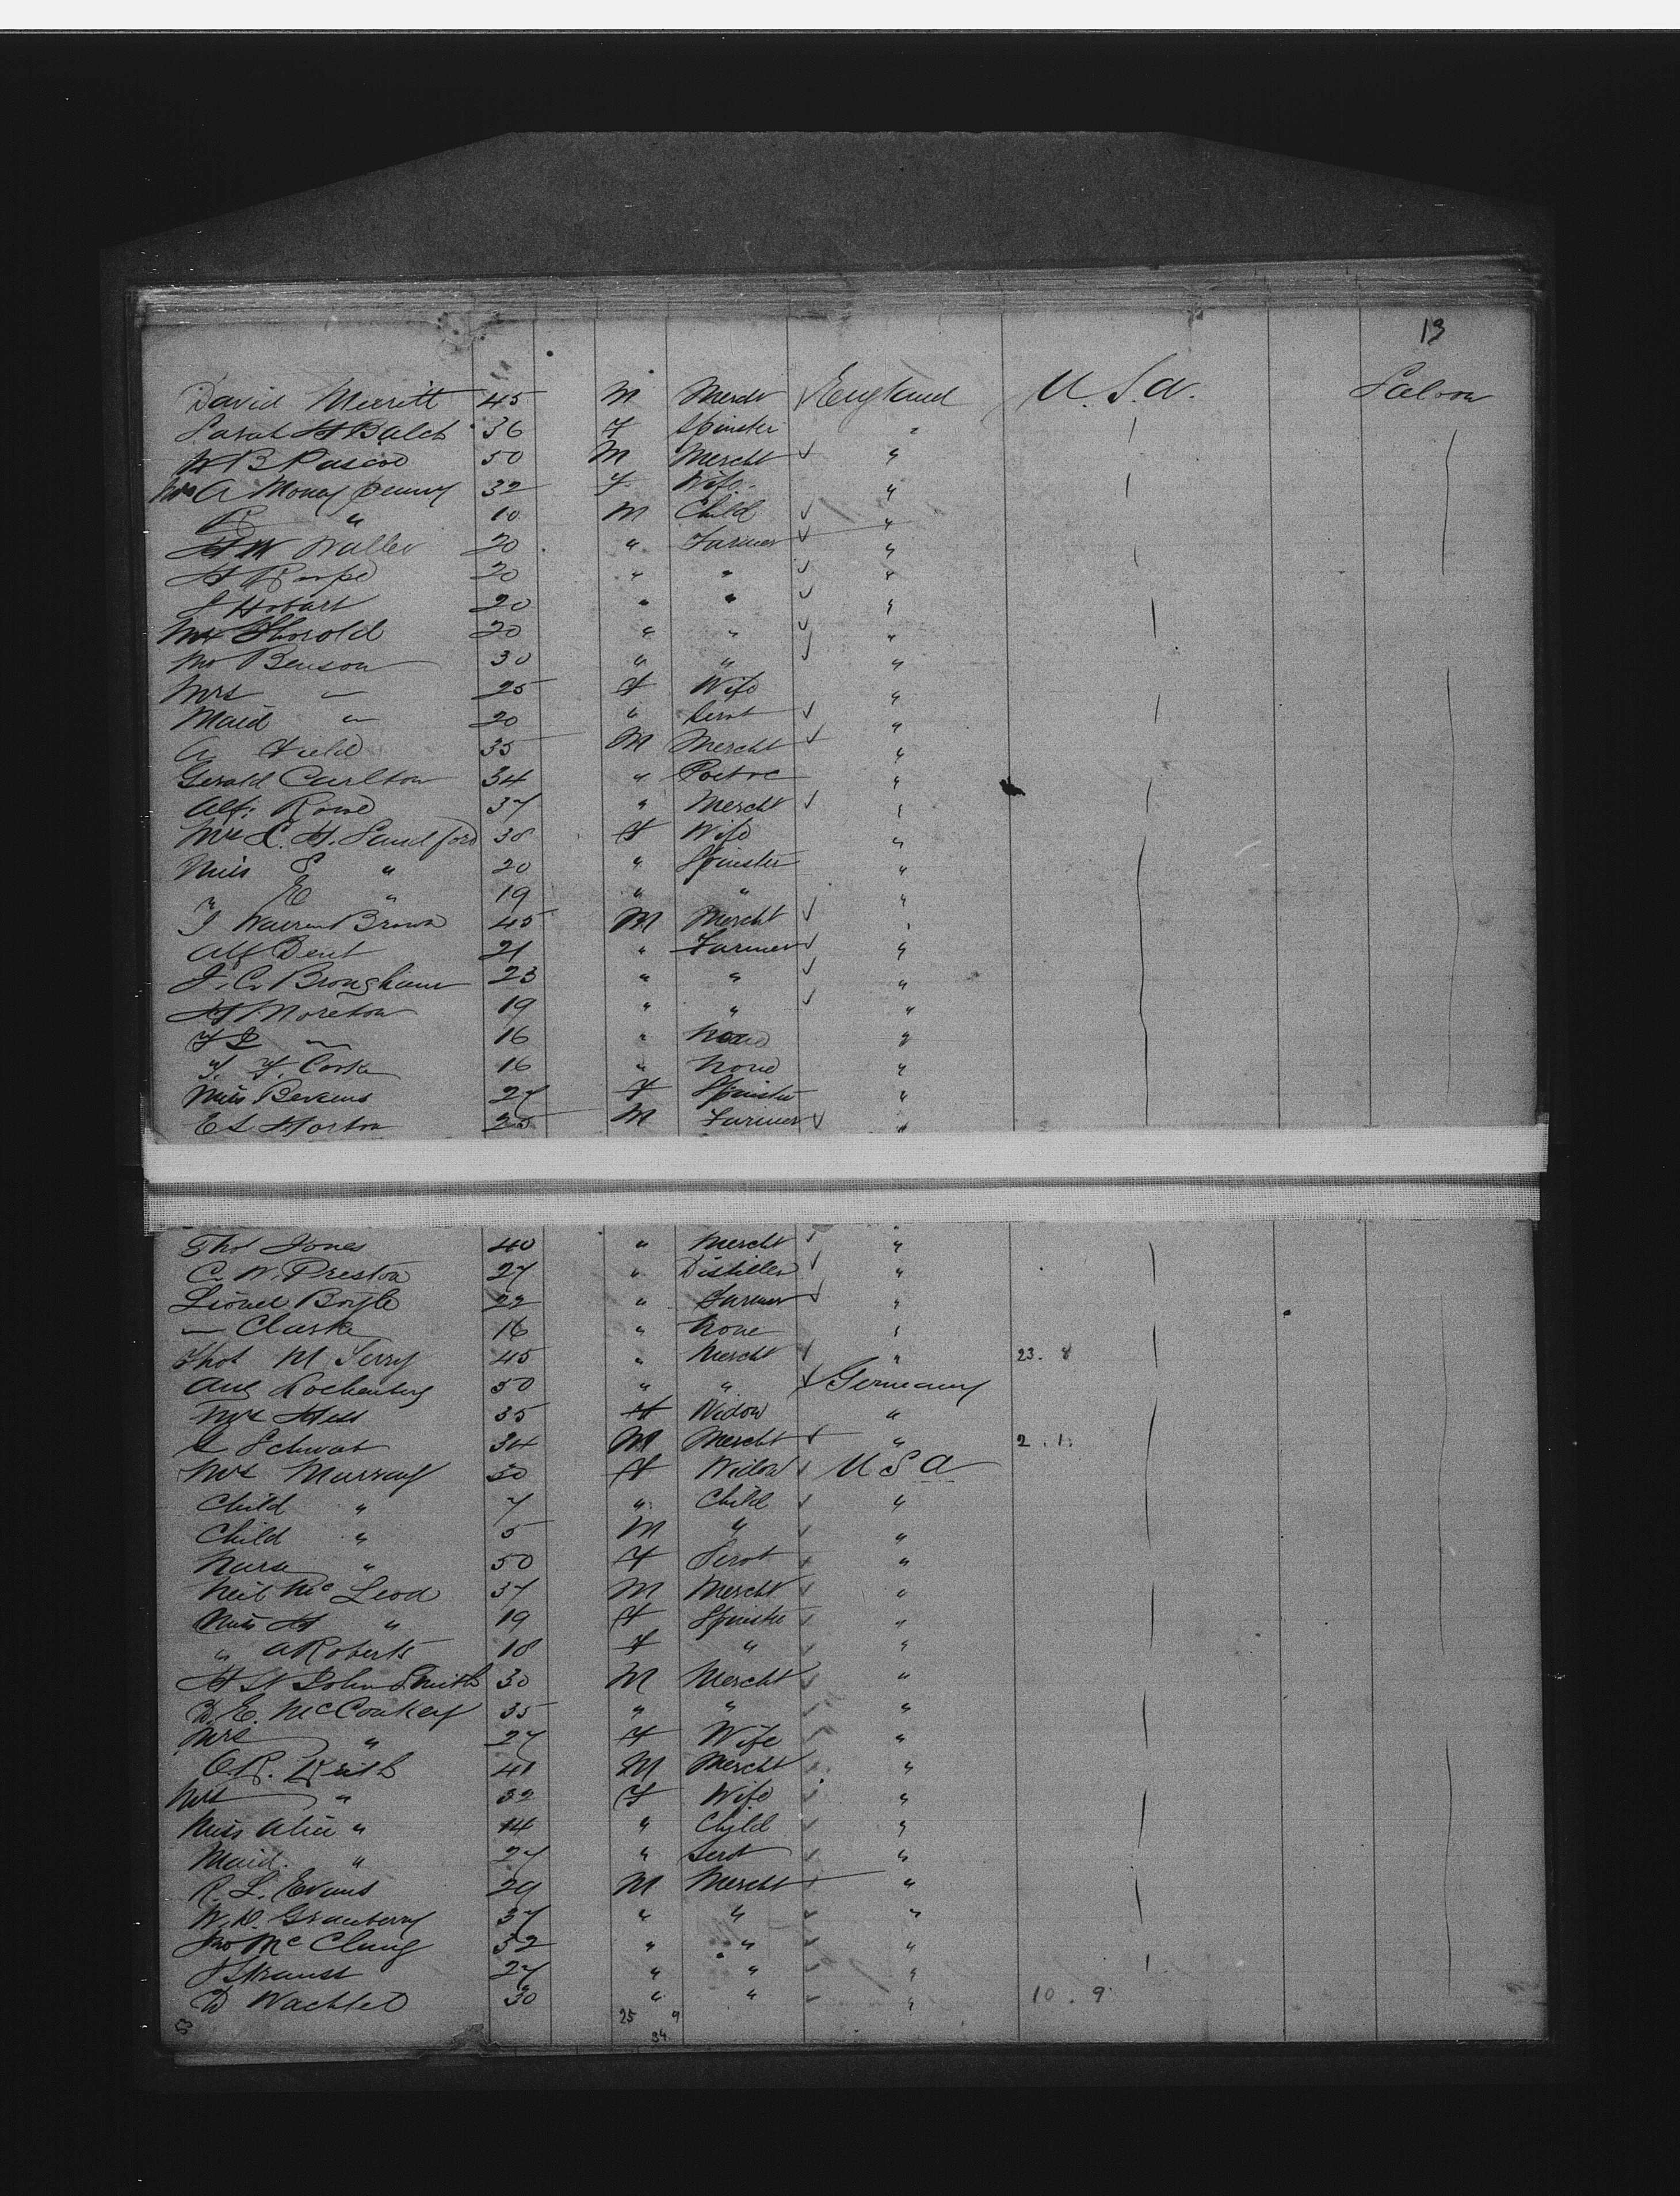 13
David Merritt 45 M Mercht England U.S.A. Saloon
Sarah H Balch 36 F Spinster "
W B Pascoe 50 M Mercht "
Mrs A Money penny 32 F Wife "
R " 10 M Child "
H W Waller 20 " Farmer "
H Rorpe 20 " " "
S Hobart 20 " " "
Thorold 20 " " "
Benson 30 " " "
Mrs — 25 F Wife "
Maid — 20 " Servt "
A Field 35 M Mercht "
Gerald Carlton 34 " "
Alf. Rowe 37 " Mercht "
Mrs C. H. Sandford 38 F Wife "
Miss S " 20 " Spinster "
" E " 19 " " "
J Warren Brown 45 M Mercht "
Alf Dent 21 " Farmer "
J. C. Brougham 23 " " "
H Moreton 19 " " "
16 " None "
F. Cooke 16 " None "
Miss Bevens 27 F Spinster "
E L Horton 25 M Farmer "
Thos Jones 40 " Mercht "
C. W. Preston 27 " Distiller "
Lionel Boyle 22 " Farmer "
— Clarke 16 " None "
Thos M Terry 45 " Mercht " 23. 8
Aug 50 " " Germany
Mrs Hess 35 F Widow "
S Schwab 34 M Mercht " 2. 1.
Mrs Murray 30 F Widow U S A
Child " 7 " Child "
Child " 5 M " "
Nurse " 50 F Servt "
Neil McLeod 37 M Mercht "
Miss H " 19 F Spinster "
" A Roberts 18 F " "
H St John Smith 30 M Mercht "
D. E. McConkey 35 " " "
Mrs " 27 F Wife "
O. R. Keith 41 M Mercht "
Mrs " 32 F Wife "
Miss Alice " 14 " Child "
Maid " 27 " Servt "
R. L. Evans 29 M Mercht "
W. D. Granberry 37 " " "
Jno McClung 32 " " "
J Strauss 27 " " "
D Wachtel 30 " " " 10. 9
25 9
34
53